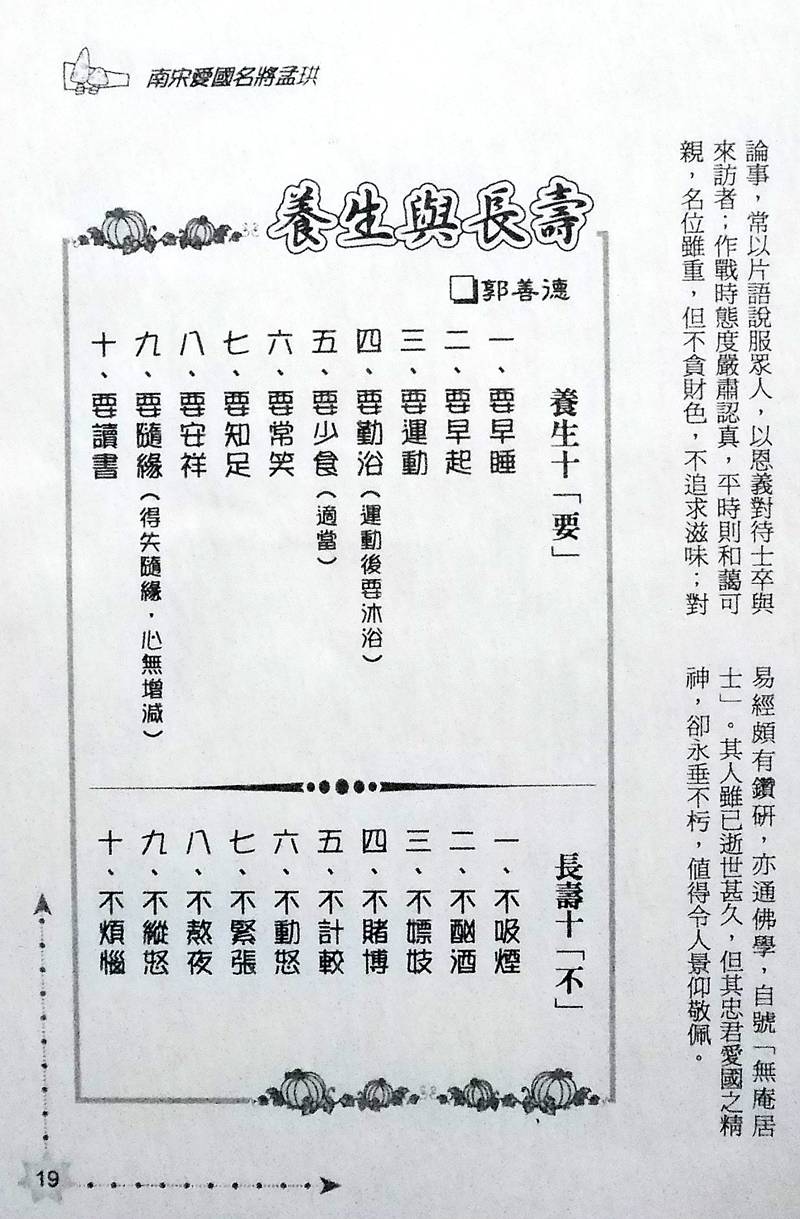 南宋愛國名將孟珙
論事，常以片語說服眾人，以恩義對待士卒與
來訪者；作戰時態度嚴肅認真，平時則和藹可
親，名位雖重，但不貪財色，不追求滋味；對
易經頗有鑽研，亦通佛學，自號「無庵居
士」。其人雖已逝世甚久，但其忠君愛國之精
神，卻永垂不朽，值得令人景仰敬佩。
養生與長壽
郭善德
養生十「要」
一、要早睡
二、要早起
三、要運動
四、要勤浴（運動後要沐浴）
五、要少食（適當）
六、要常笑
七、要知足
八、要安祥
九、要隨緣（得失隨緣，心無增減）
十、要讀書
長壽十「不」
一、不吸煙
二、不酗酒
三、不嫖妓
四、不賭博
五、不計較
六、不動怒
七、不緊張
八、不熬夜
九、不縱怒
十、不煩惱
19